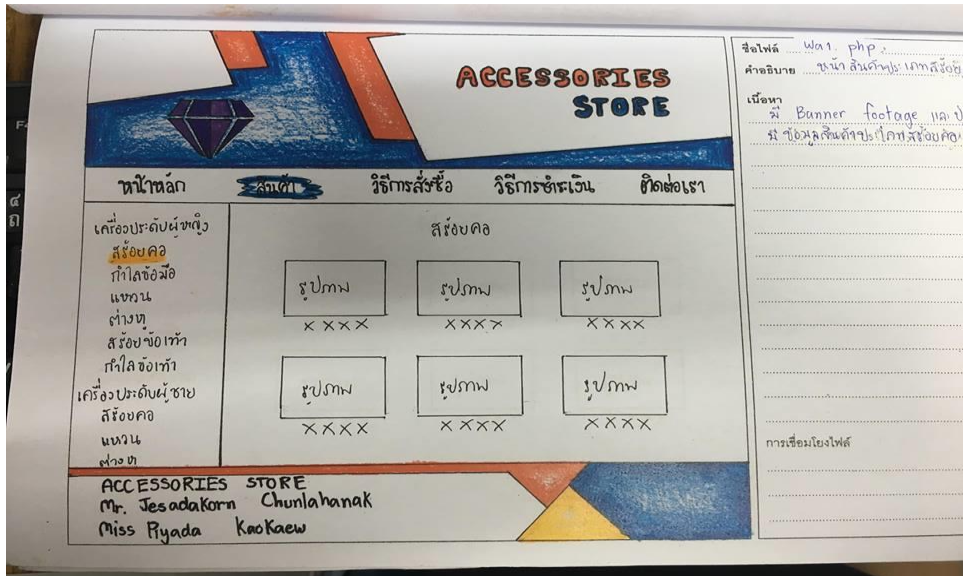 ACCESSORIES
STORE
หน้าหลัก สินค้า วิธีการสั่งซื้อ วิธีการชำระเงิน ติดต่อเรา
เครื่องประดับผู้หญิง
สร้อยคอ
กำไลข้อมือ
แหวน
ต่างหู
สร้อยข้อเท้า
กำไลข้อเท้า
เครื่องประดับผู้ชาย
สร้อยคอ
แหวน
ต่างหู
สร้อยคอ
รูปภาพ รูปภาพ รูปภาพ
XXXX XXXX XXXX
รูปภาพ รูปภาพ รูปภาพ
XXXX XXXX XXXX
ACCESSORIES STORE
Mr. Jesadakorn Chunlahanak
Miss Piyada KaoKaew
ชื่อไฟล์ wa1.php
คำอธิบาย หน้าสินค้าประเภทสร้อย
เนื้อหา
มี Banner footage และ
มีข้อมูลสินค้าประเภทสร้อยคอ
การเชื่อมโยงไฟล์